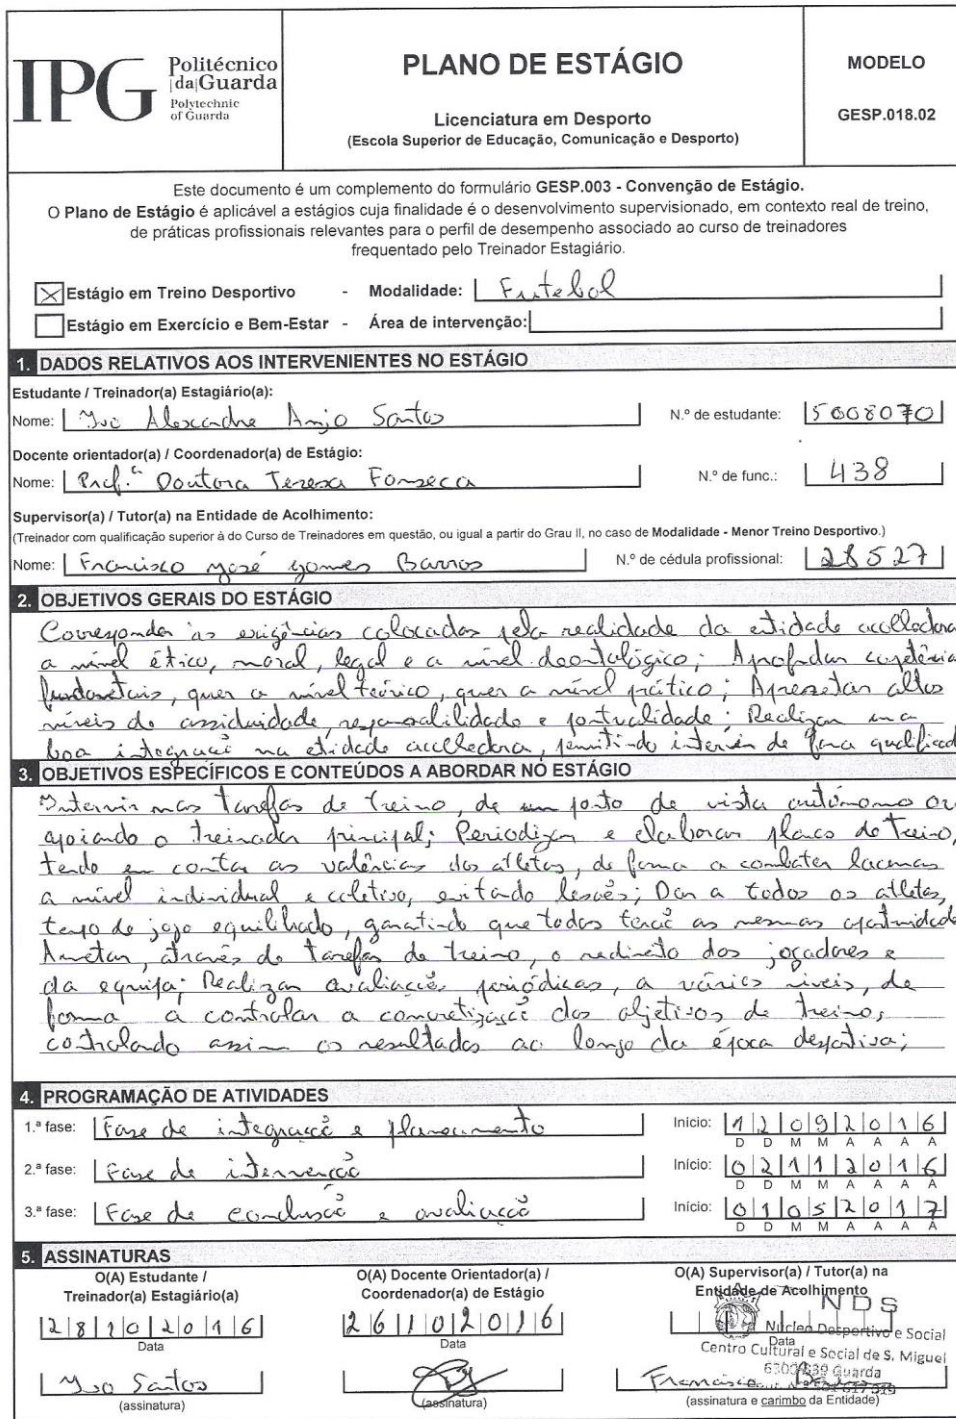 IPG Politécnico
|da|Guarda
Polytechnic
of Guarda
PLANO DE ESTÁGIO
Licenciatura em Desporto
(Escola Superior de Educação, Comunicação e Desporto)
MODELO
GESP.018.02
Este documento é um complemento do formulário GESP.003 - Convenção de Estágio.
O Plano de Estágio é aplicável a estágios cuja finalidade é o desenvolvimento supervisionado, em contexto real de treino,
de práticas profissionais relevantes para o perfil de desempenho associado ao curso de treinadores
frequentado pelo Treinador Estagiário.
Estágio em Treino Desportivo - Modalidade: Futebol
Estágio em Exercício e Bem-Estar - Área de intervenção:
1. DADOS RELATIVOS AOS INTERVENIENTES NO ESTÁGIO
Estudante / Treinador(a) Estagiário(a):
Nome: Ivo Alexandre Anjo Santos N.º de estudante: 5008070
Docente orientador(a) / Coordenador(a) de Estágio:
Nome: Prof.ª Doutora Teresa Fonseca N.º de func.: 438
Supervisor(a) / Tutor(a) na Entidade de Acolhimento:
(Treinador com qualificação superior à do Curso de Treinadores em questão, ou igual a partir do Grau II, no caso de Modalidade - Menor Treino Desportivo.)
Nome: Francisco José Gomes Barros N.º de cédula profissional: 28527
2. OBJETIVOS GERAIS DO ESTÁGIO
Corresponder às exigências colocadas pela realidade da entidade acolhedora
a nível ético, moral, legal e a nível deontológico; Aprofundar competências
fundamentais, quer a nível teórico, quer a nível prático; Apresentar altos
níveis de assiduidade, responsabilidade e pontualidade; Realizar uma
boa integração na entidade acolhedora, permitindo intervir de forma qualificada
3. OBJETIVOS ESPECÍFICOS E CONTEÚDOS A ABORDAR NO ESTÁGIO
Intervir nas tarefas de treino, de um ponto de vista autónomo ou
apoiando o treinador principal; Periodizar e elaborar planos de treino,
tendo em conta as valências dos atletas, de forma a combater lacunas
a nível individual e coletivo, evitando lesões; Dar a todos os atletas,
tempo de jogo equilibrado, garantindo que todos terão as mesmas oportunidades
Aumentar, através de tarefas de treino, o rendimento dos jogadores e
da equipa; Realizar avaliações periódicas, a vários níveis, de
forma a controlar a concretização dos objetivos de treino,
controlando assim os resultados ao longo da época desportiva;
4. PROGRAMAÇÃO DE ATIVIDADES
1.ª fase: Fase de integração e planeamento Início: 12092016
D D M M A A A A
2.ª fase: Fase de intervenção Início: 02112016
D D M M A A A A
3.ª fase: Fase de conclusão e avaliação Início: 01052017
D D M M A A A A
5. ASSINATURAS
O(A) Estudante /
Treinador(a) Estagiário(a)
28102016
Data
Ivo Santos
(assinatura)
O(A) Docente Orientador(a) /
Coordenador(a) de Estágio
26102016
Data
(assinatura)
O(A) Supervisor(a) / Tutor(a) na
Entidade de Acolhimento
NDS
Núcleo Desportivo e Social
Data
Centro Cultural e Social de S. Miguel
Guarda
Francisco Barros
(assinatura e carimbo da Entidade)